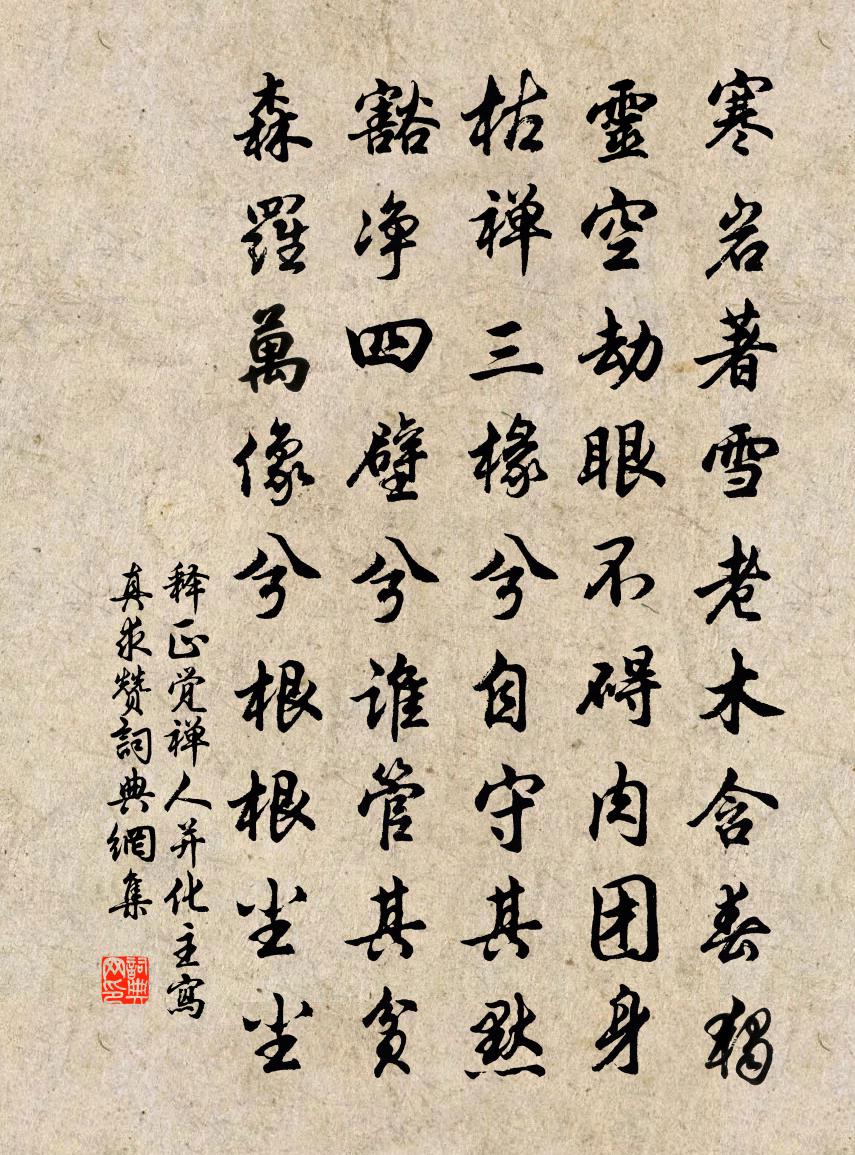 寒岩著雪老木含春獨
靈空劫眼不碍肉团身
枯禅三椽兮自守其默
豁净四壁兮谁管其贫
森羅萬像兮根根尘尘
释正觉禅人并化主寫
真求赞詞典網集
詞典网印